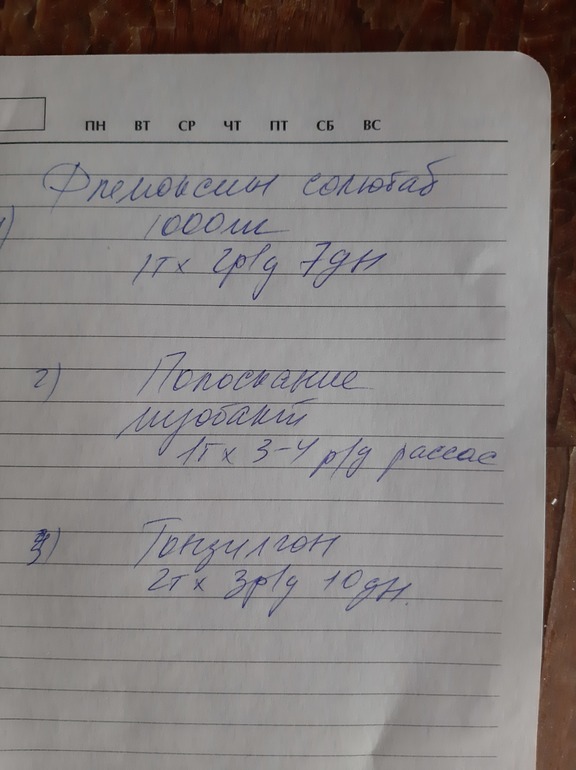 ПН ВТ СР ЧТ ПТ СБ ВС
Флемоксин солютаб
1) 1000мг
1т х 2р/д 7дн
2) Полоскание
лизобакт
1т х 3-4 р/д рассас
3) Тонзилгон
2т х 3р/д 10дн.